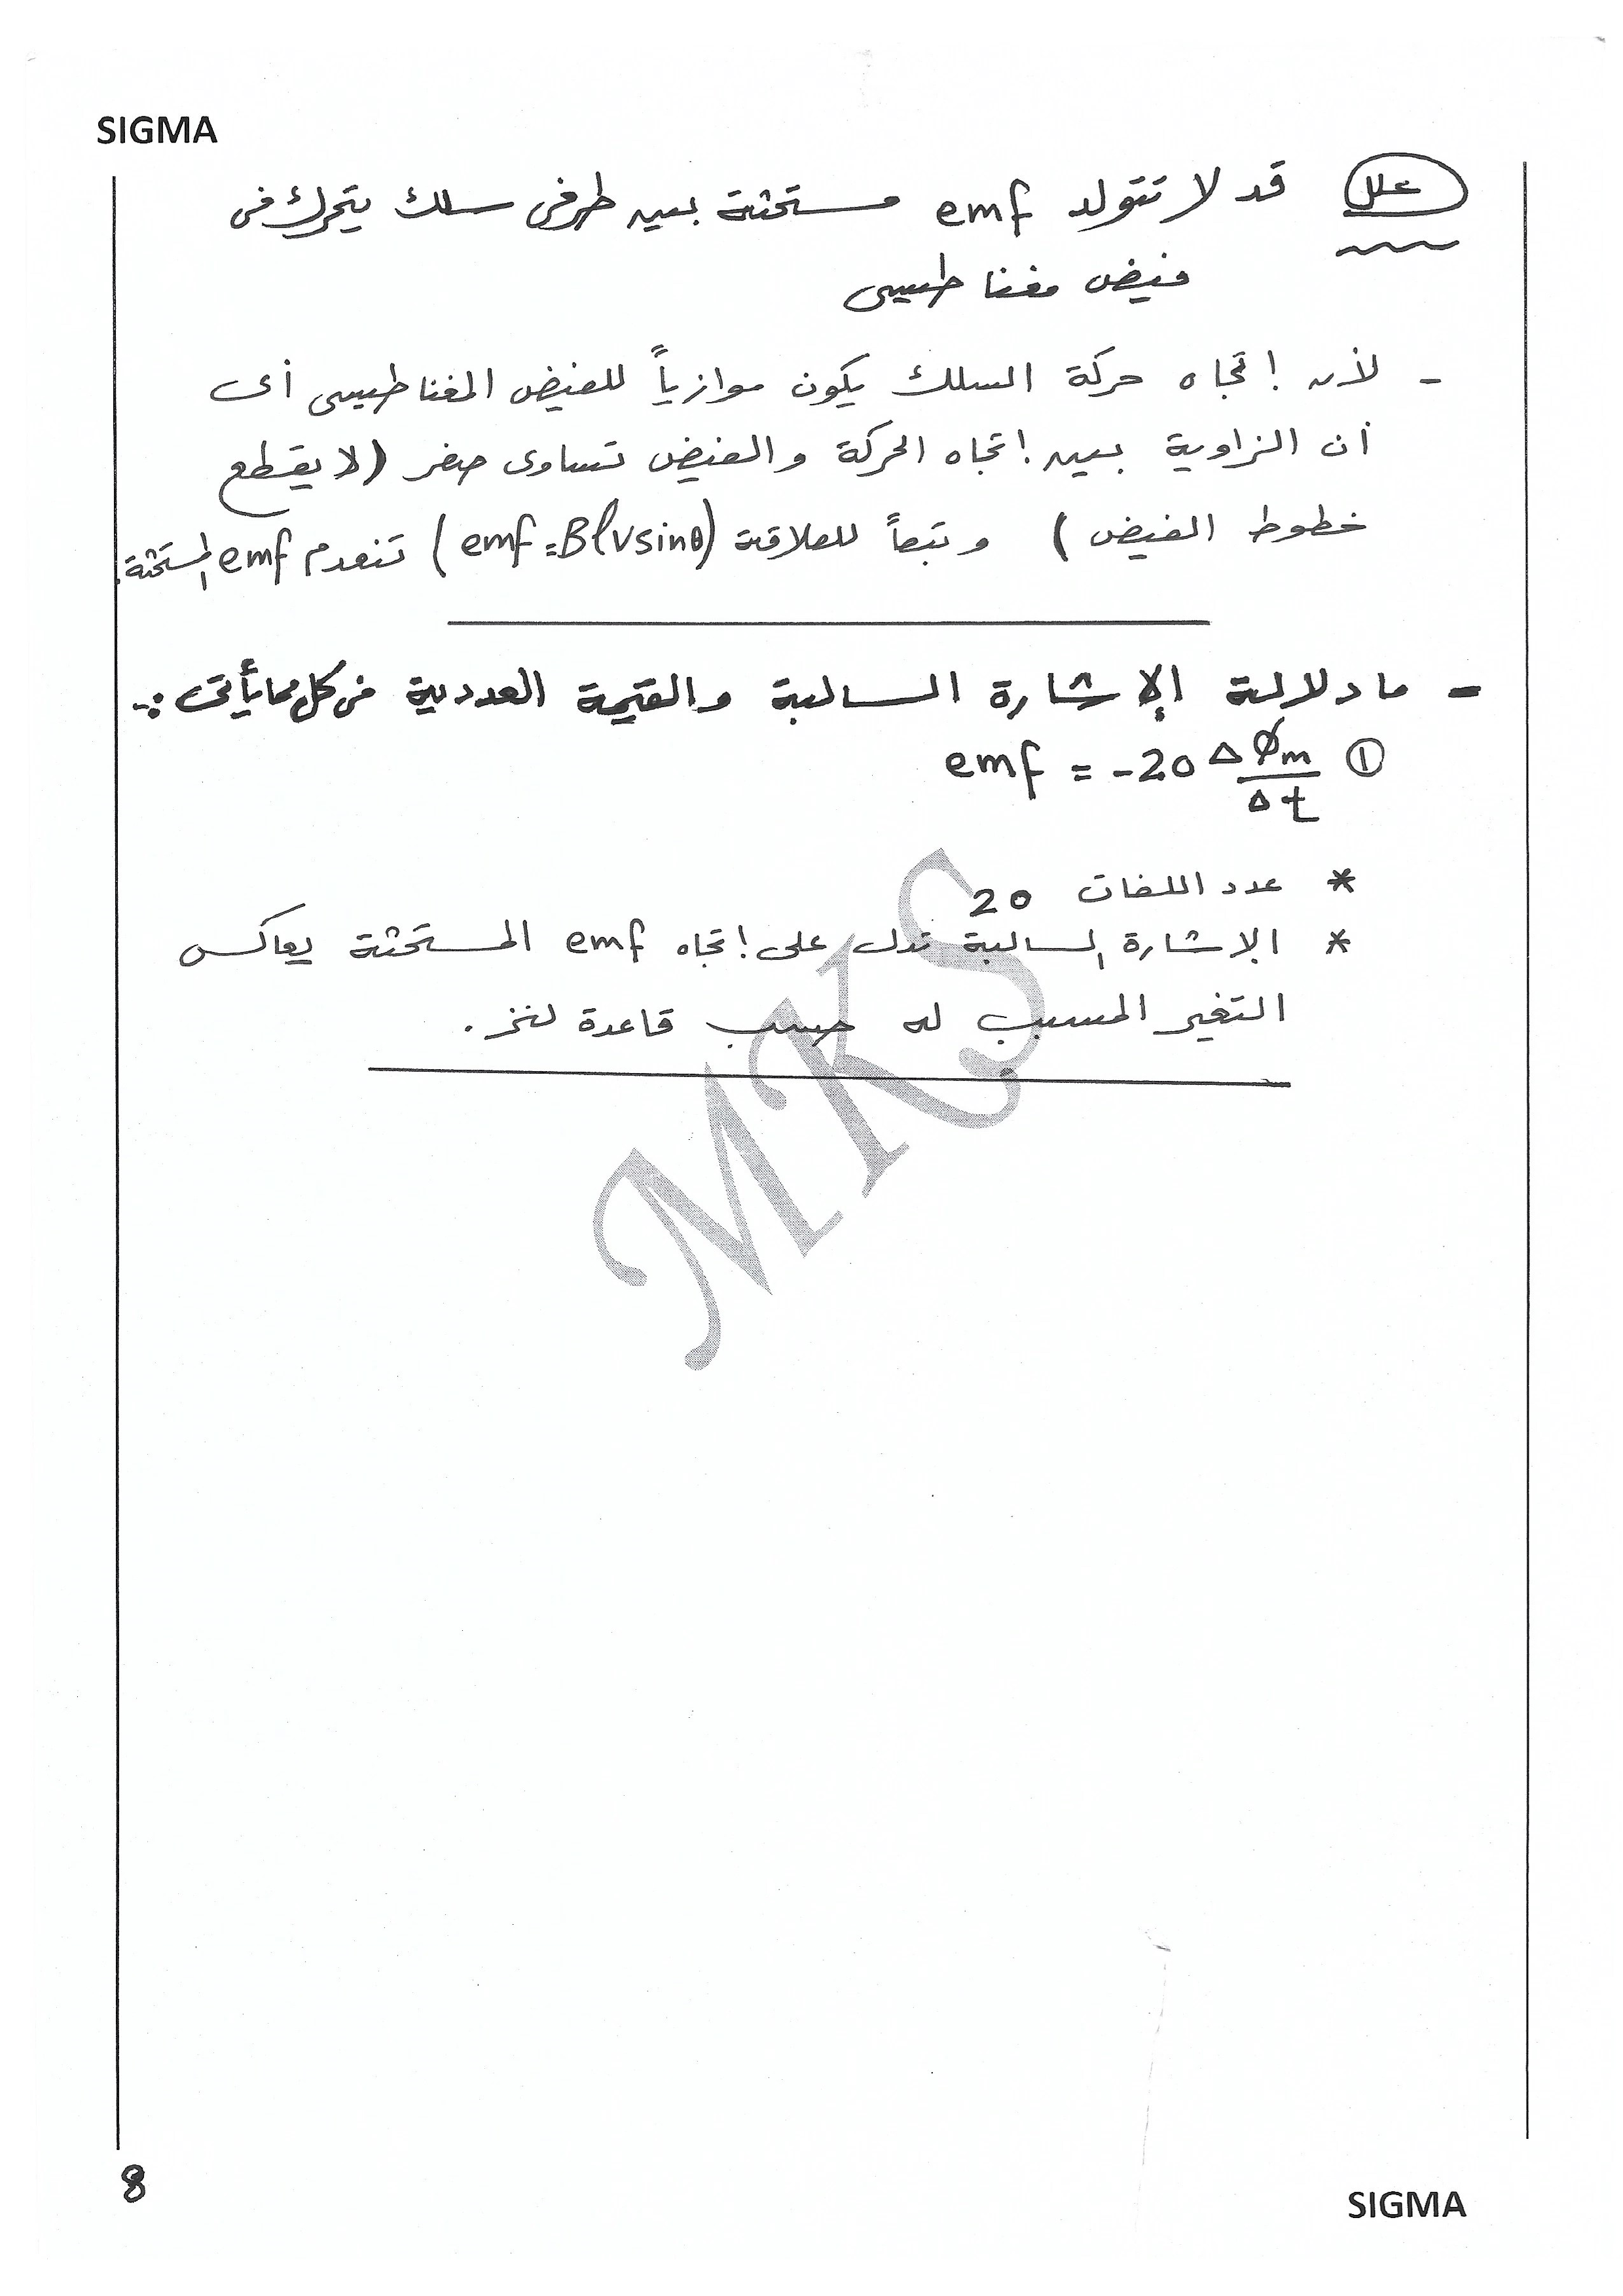 SIGMA
علل قد لا تتولد emf مستحثة بين طرفى سلك يتحرك فى
فيض مغناطيسى
- لأن إتجاه حركة السلك يكون موازياً للفيض المغناطيسى أى
أن الزاوية بين إتجاه الحركة والفيض تساوى صفر (لا يقطع
خطوط الفيض) وتبعاً للعلاقة (emf = Blvsinθ) تنعدم emf المستحثة.
- ما دلالة الإشارة السالبة والقيمة العددية فى كل مما يأتى :-
① emf = -20 ΔØm / Δt
* عدد اللفات 20
* الإشارة السالبة تدل على إتجاه emf المستحثة يعاكس
التغير المسبب له حسب قاعدة لنز.
MKS
8
SIGMA